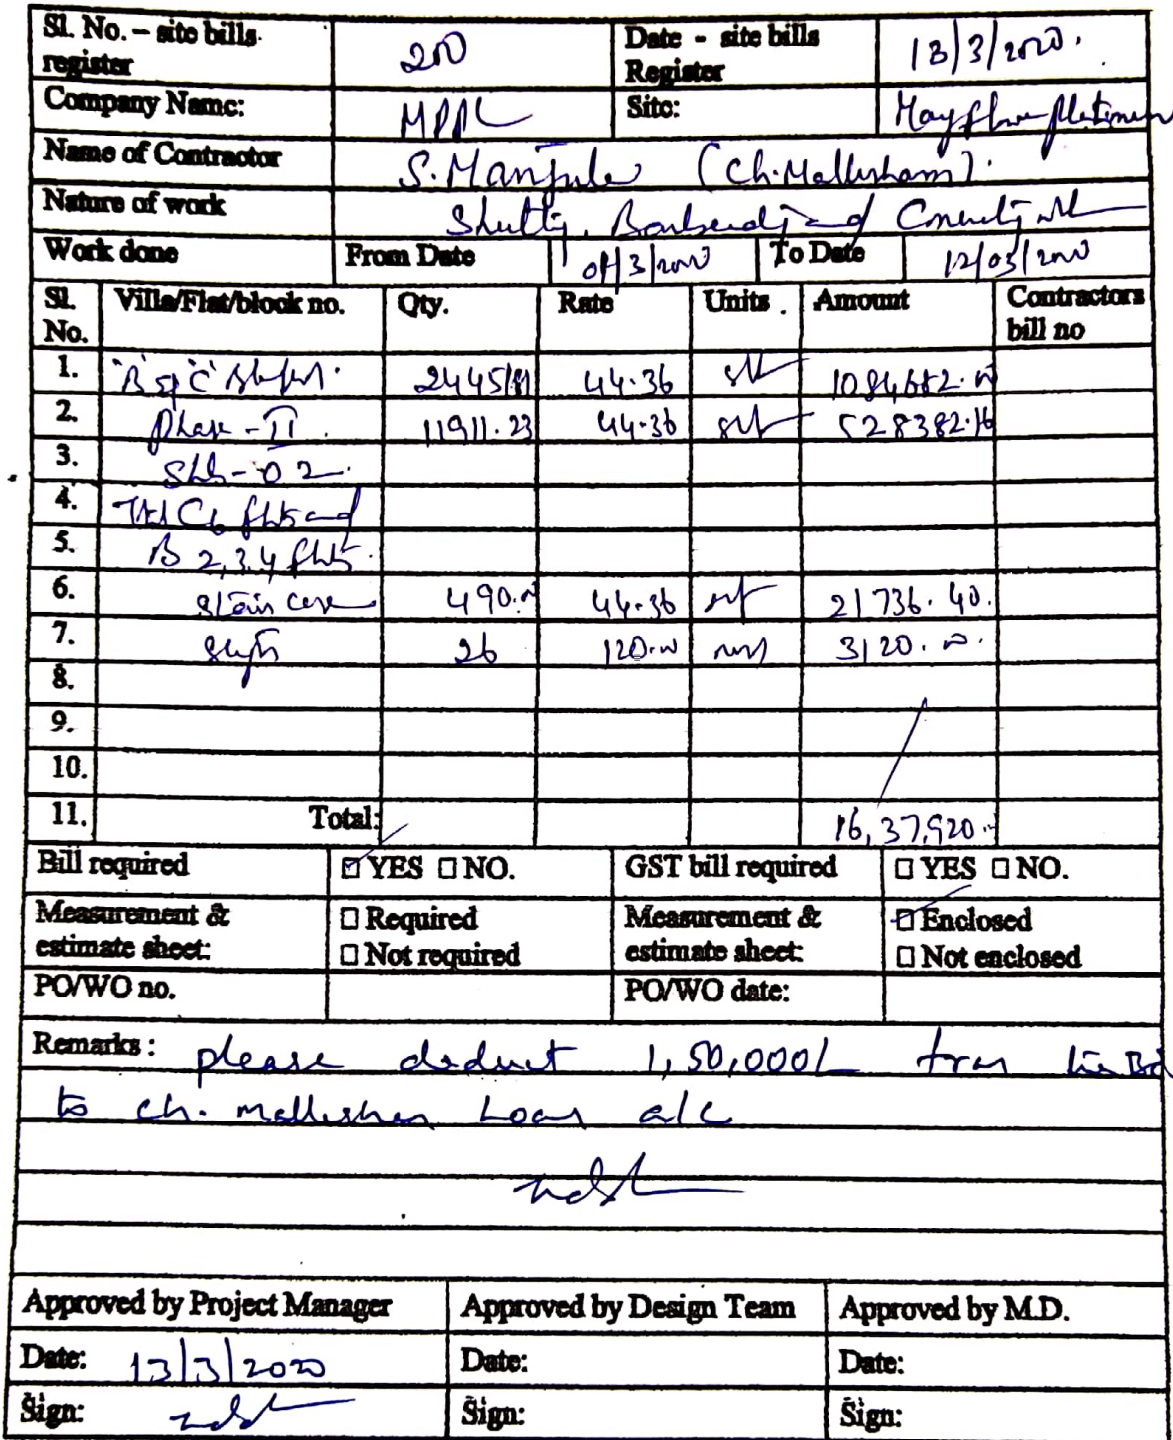 Sl. No. – site bills register 200 Date - site bills Register 13/3/2020.
Company Name: MPPL Site: Mayflower Platinum
Name of Contractor S. Manjula (Ch. Mallesham).
Nature of work and
Work done From Date 01/3/2020 To Date 12/03/2020
Sl. No. Villa/Flat/block no. Qty. Rate Units. Amount Contractors bill no
1. 44.36 sft
2. Phase - II 11911.23 44.36 sft 528382.16
3. Slab - 02.
4. flats and
5. B 2,3,4 flats.
6. Stair case 490.00 44.36 sft 21736.40.
7. 26 120.00 3120.00.
8.
9.
10.
11. Total: 16,37,920.-
Bill required ☑ YES ☐ NO. GST bill required ☐ YES ☐ NO.
Measurement & estimate sheet: ☐ Required ☐ Not required Measurement & estimate sheet: ☑ Enclosed ☐ Not enclosed
PO/WO no. PO/WO date:
Remarks: please deduct 1,50,000/-
to ch. mallesham Loan a/c
Approved by Project Manager Approved by Design Team Approved by M.D.
Date: 13/3/2020 Date: Date:
Sign: Sign: Sign: